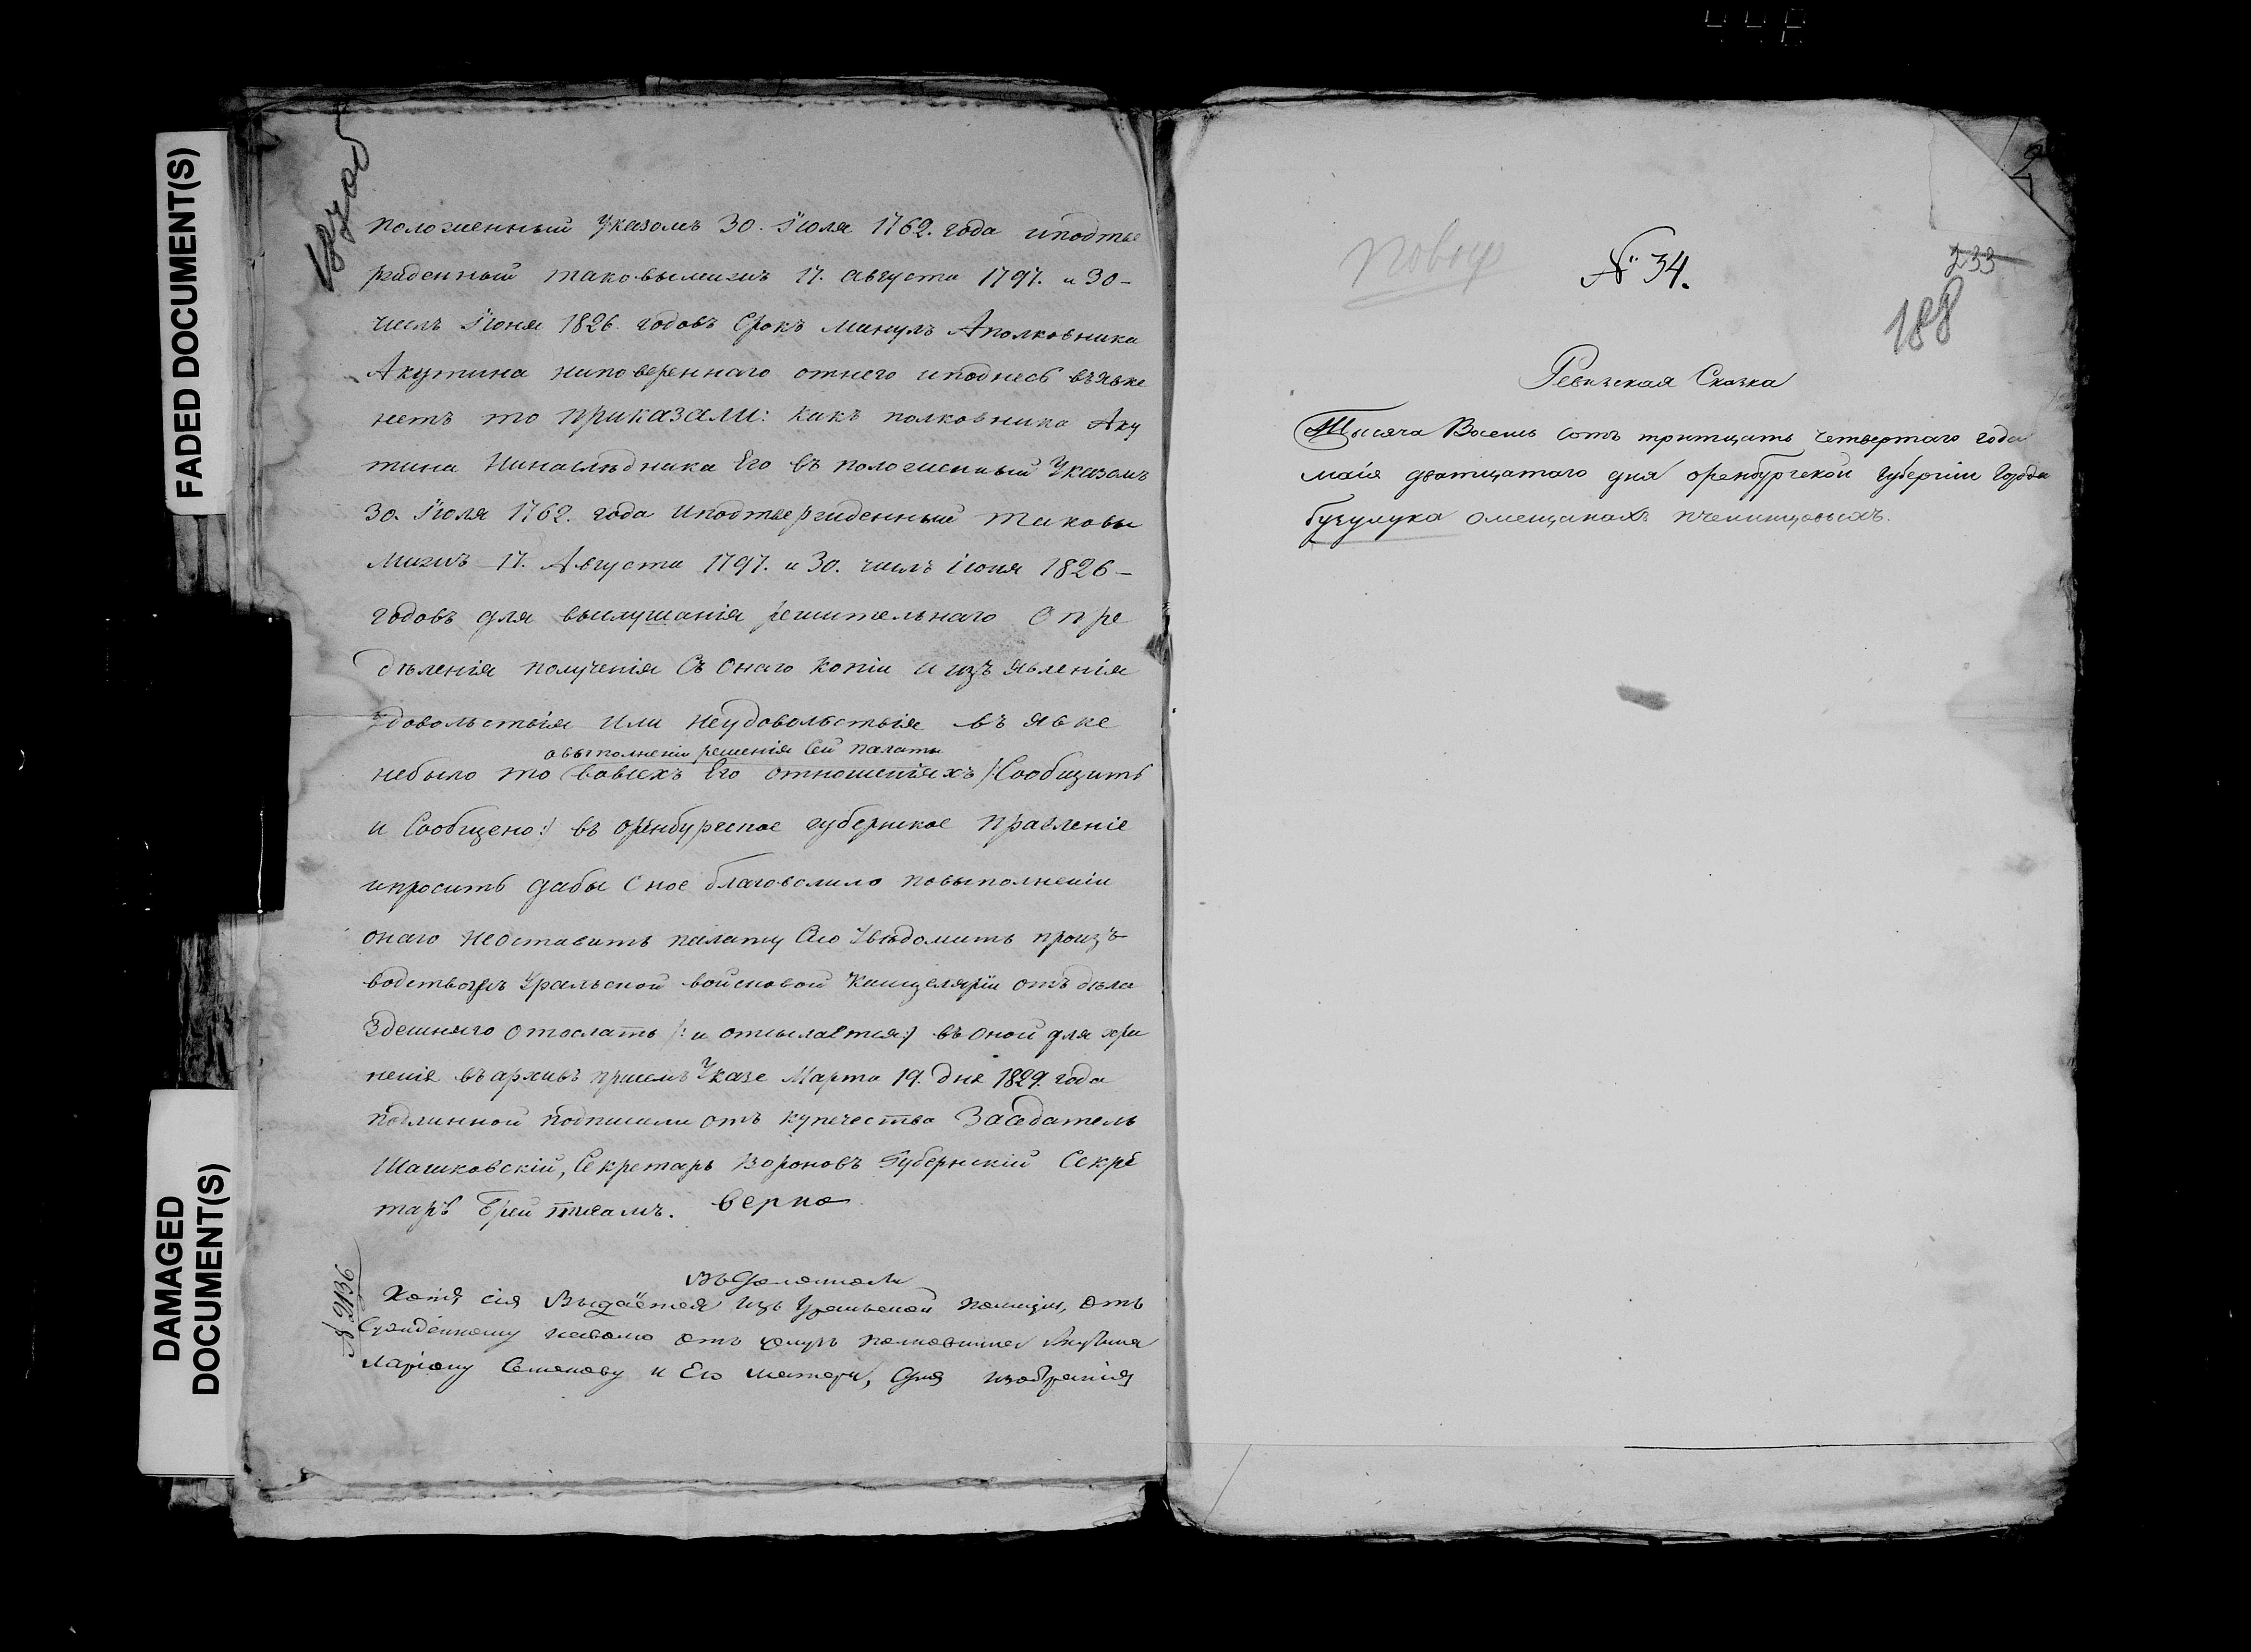 FADED DOCUMENT(S)
DAMAGED
DOCUMENT(S)
положенный указомъ 30. Іюля 1762. года иподтве
ржденный таковымижъ 17. августа 1797. и 30-
числъ Іюня 1826. годовъ Срокъ минулъ Аполковника
Акутина ниповереннаго отнего иподнесь въявке
нетъ то приказали: какъ полковника Аку
тина Нинаслѣдника Его въ положенный Указомъ
30. Іюля 1762. года Иподтвержденный таковы
мижъ 17. Августа 1797. и 30. числъ іюня 1826-
годовъ для выслушанія решительнаго Опре
дѣленія полученія Съ Онаго копіи и изъявленія
удовольствія Или неудовольствія въ явке
овыполненіи решенія Сей палаты
небыло то вовсехъ Его отношеніяхъ /:Сообщить
и Сообщено:/ въ оренбургское губернское правленіе
ипросить дабы Оное благоволило повыполненіи
онаго неоставить палату Сію Увѣдомить произъ
водство Уральской войсковой Канцеляріи отъ дѣла
Здешняго отослать /: и отсылается:/ въ оной для хра
ненія въархивъ приемъ Указе Марта 19. дня 1829. года
подлинной подписали отъ купечества Заседатель
Шашковскій, Секретарь Вороновъ Губернскій Секре
тарь верно
№ 2136
Въдолженной
Копія сія Выдаётся изъ Уральской полиціи, отъ
Сужденному наволю отъ полковника Акутина
Ларіону Семенову и Его матери, Для изображенія
№ 34.
233
188
Ревизская Сказка
Тысяча Восемь сотъ тритцать четвертаго года
маія дватцатаго дня оренбургской Губерніи Города
бузулука омещанахъ пчелинцовыхъ.